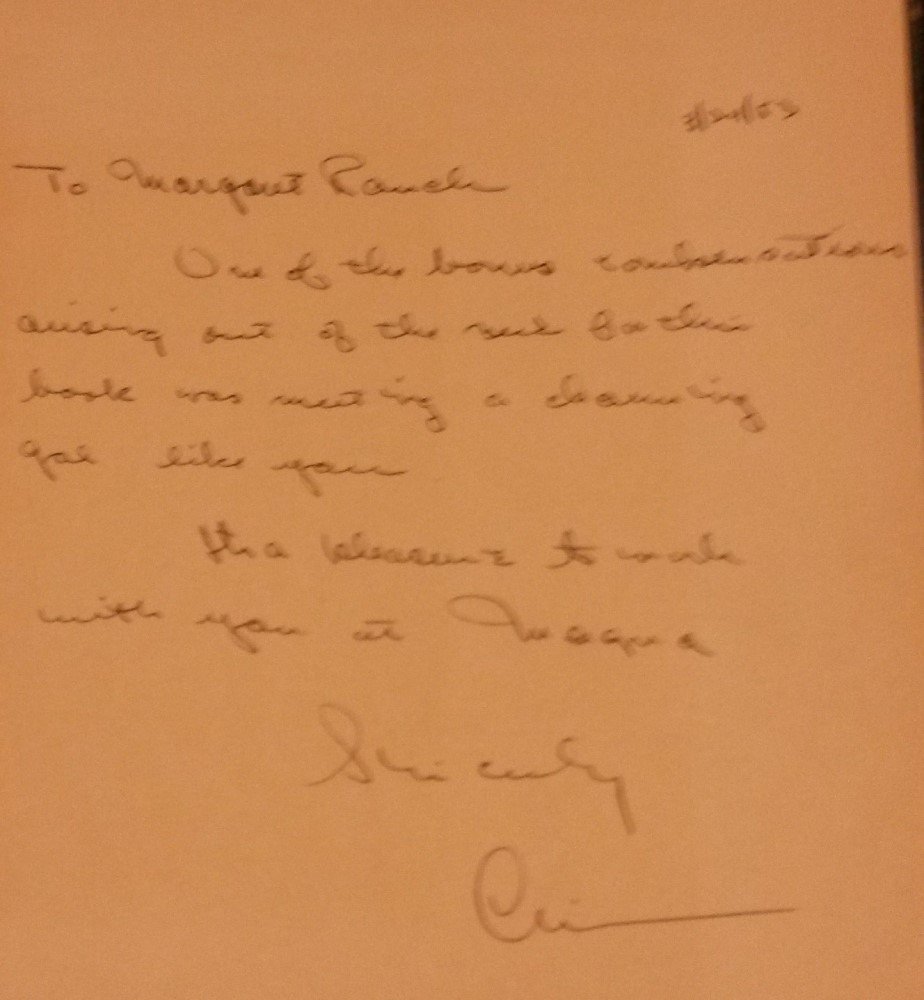 To Margaret Rauch
One of the bonus compensations
arising out of the work for this
book was meeting a charming
gal like you
It's a pleasure to work
with you at Magna
Sincerely